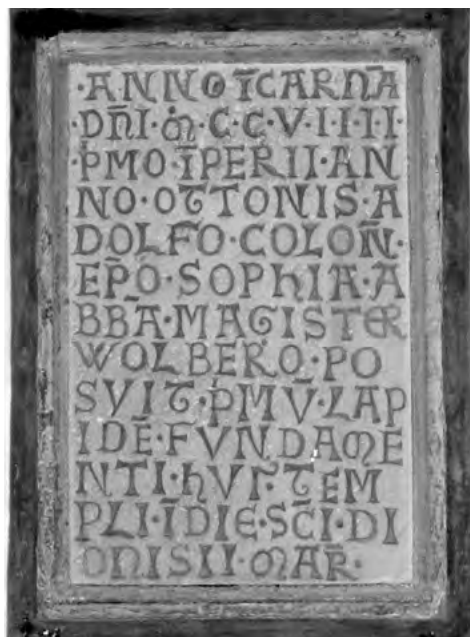 ·ANNO·ĪCARNĀ
·DN̄I·M̊·C·C·V·I·I·I·I·
·ṖMO·ĪPERII·AN
NO·OTTONIS·A
DOLFO·COLON̄·
EP̄O·SOPHIA·A
BBĀ·MAGISTER
WOLBERO·PO
SVIT·ṖMV̄·LAP
IDĒ·FVNDAME
NTI·HVI᾽·TEM
PLI·ĪDIE·SC̄I·DI
ONISII·MAR̄·